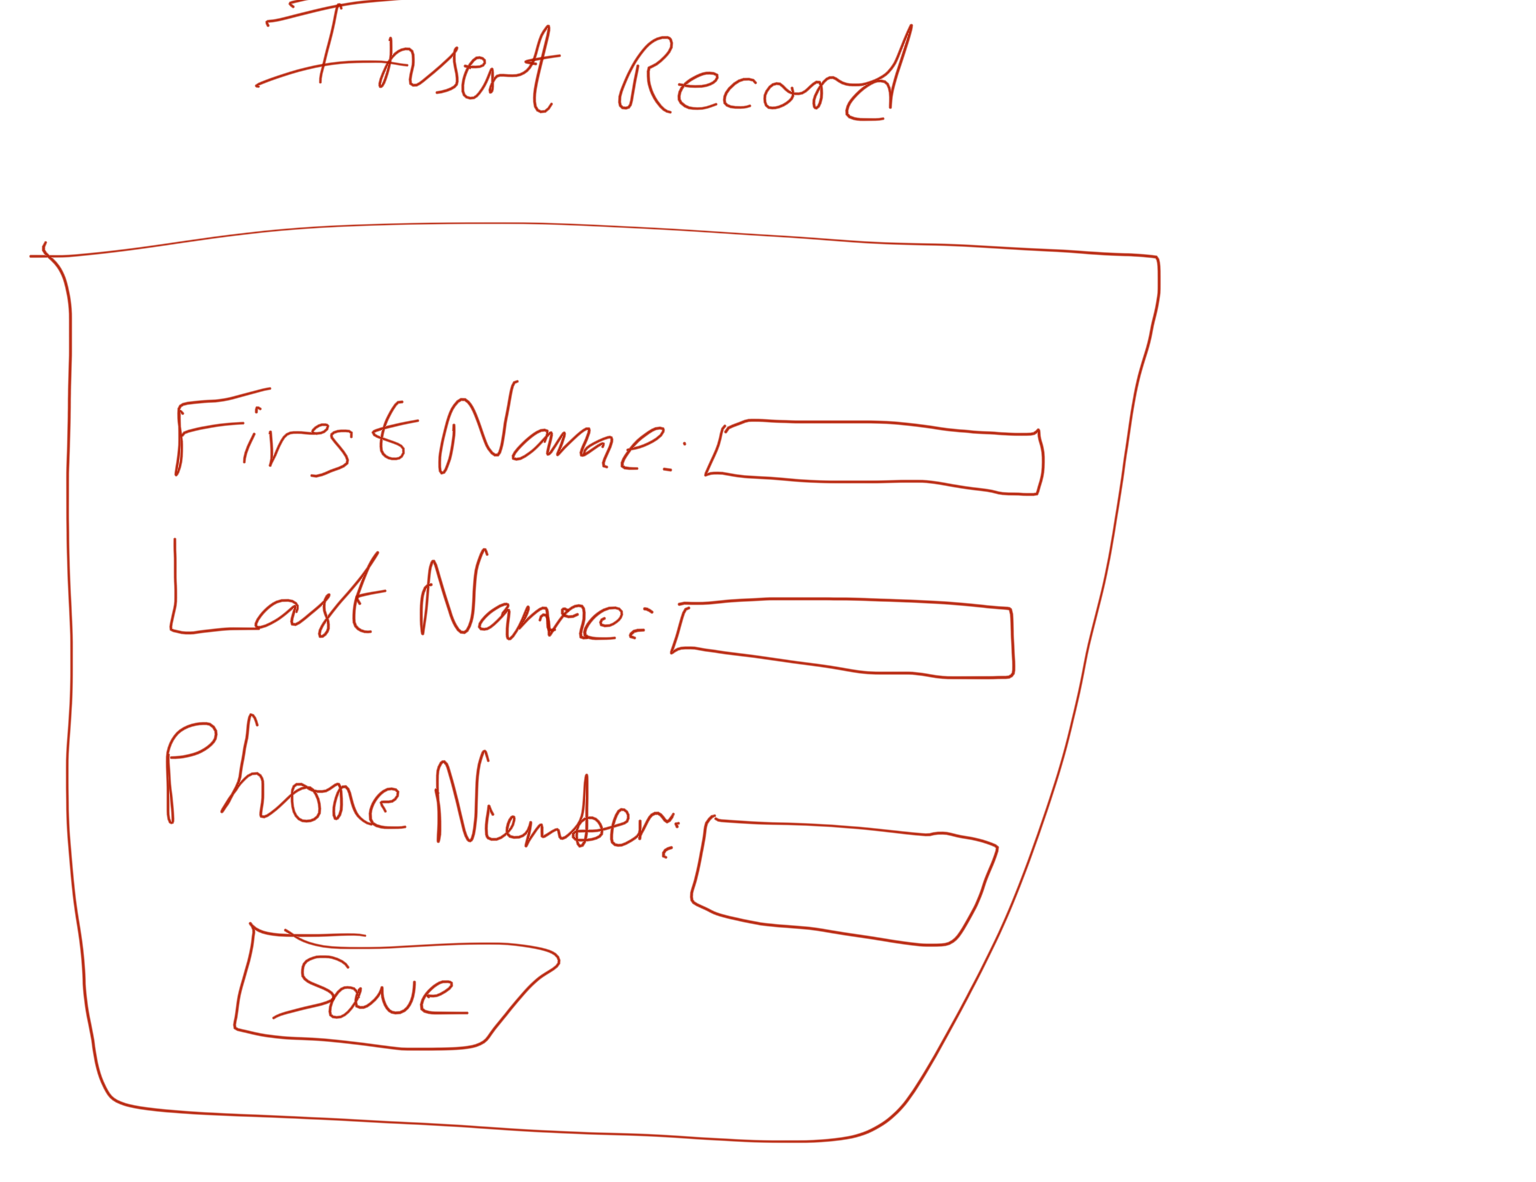 Insert Record
First Name:
Last Name:
Phone Number:
Save